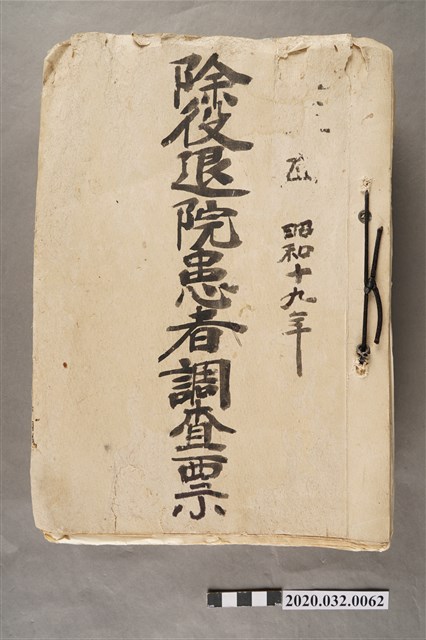 昭和十九年
除役退院患者調査票
2020.032.0062